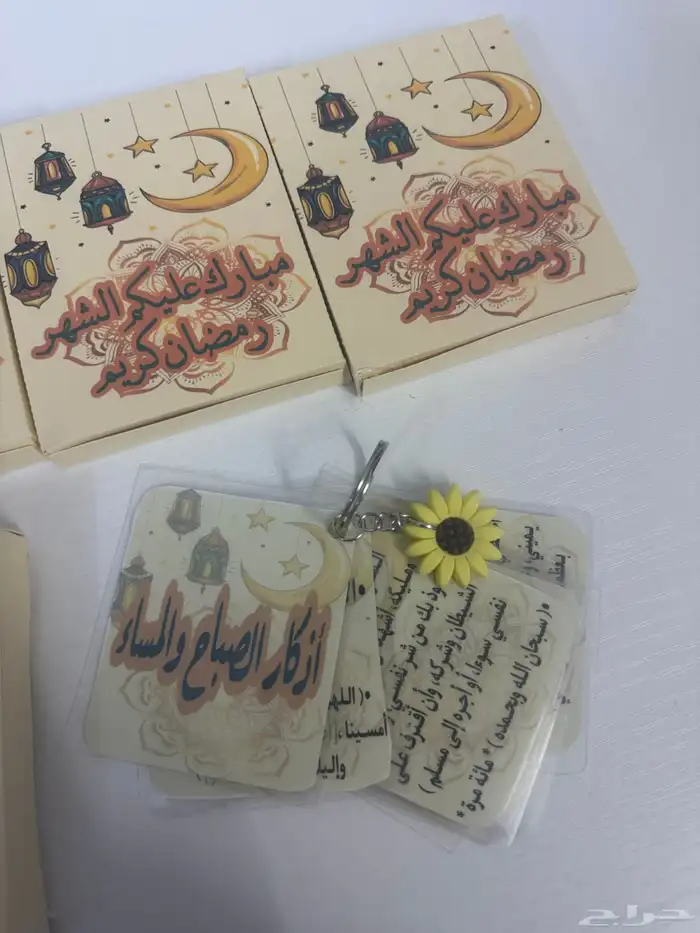 مبارك عليكم الشهر
رمضان كريم
مبارك عليكم الشهر
رمضان كريم
أذكار الصباح والمساء
•( اللهم
أمسينا،
ومليكه، أشهد
وذ بك من شر نفسي
الشيطان وشركه، وأن أقترف على
نفسي سوءا، أو أجره إلى مسلم)
•( سبحان الله وبحمده ) * مائة مرة *
يميني
حراج